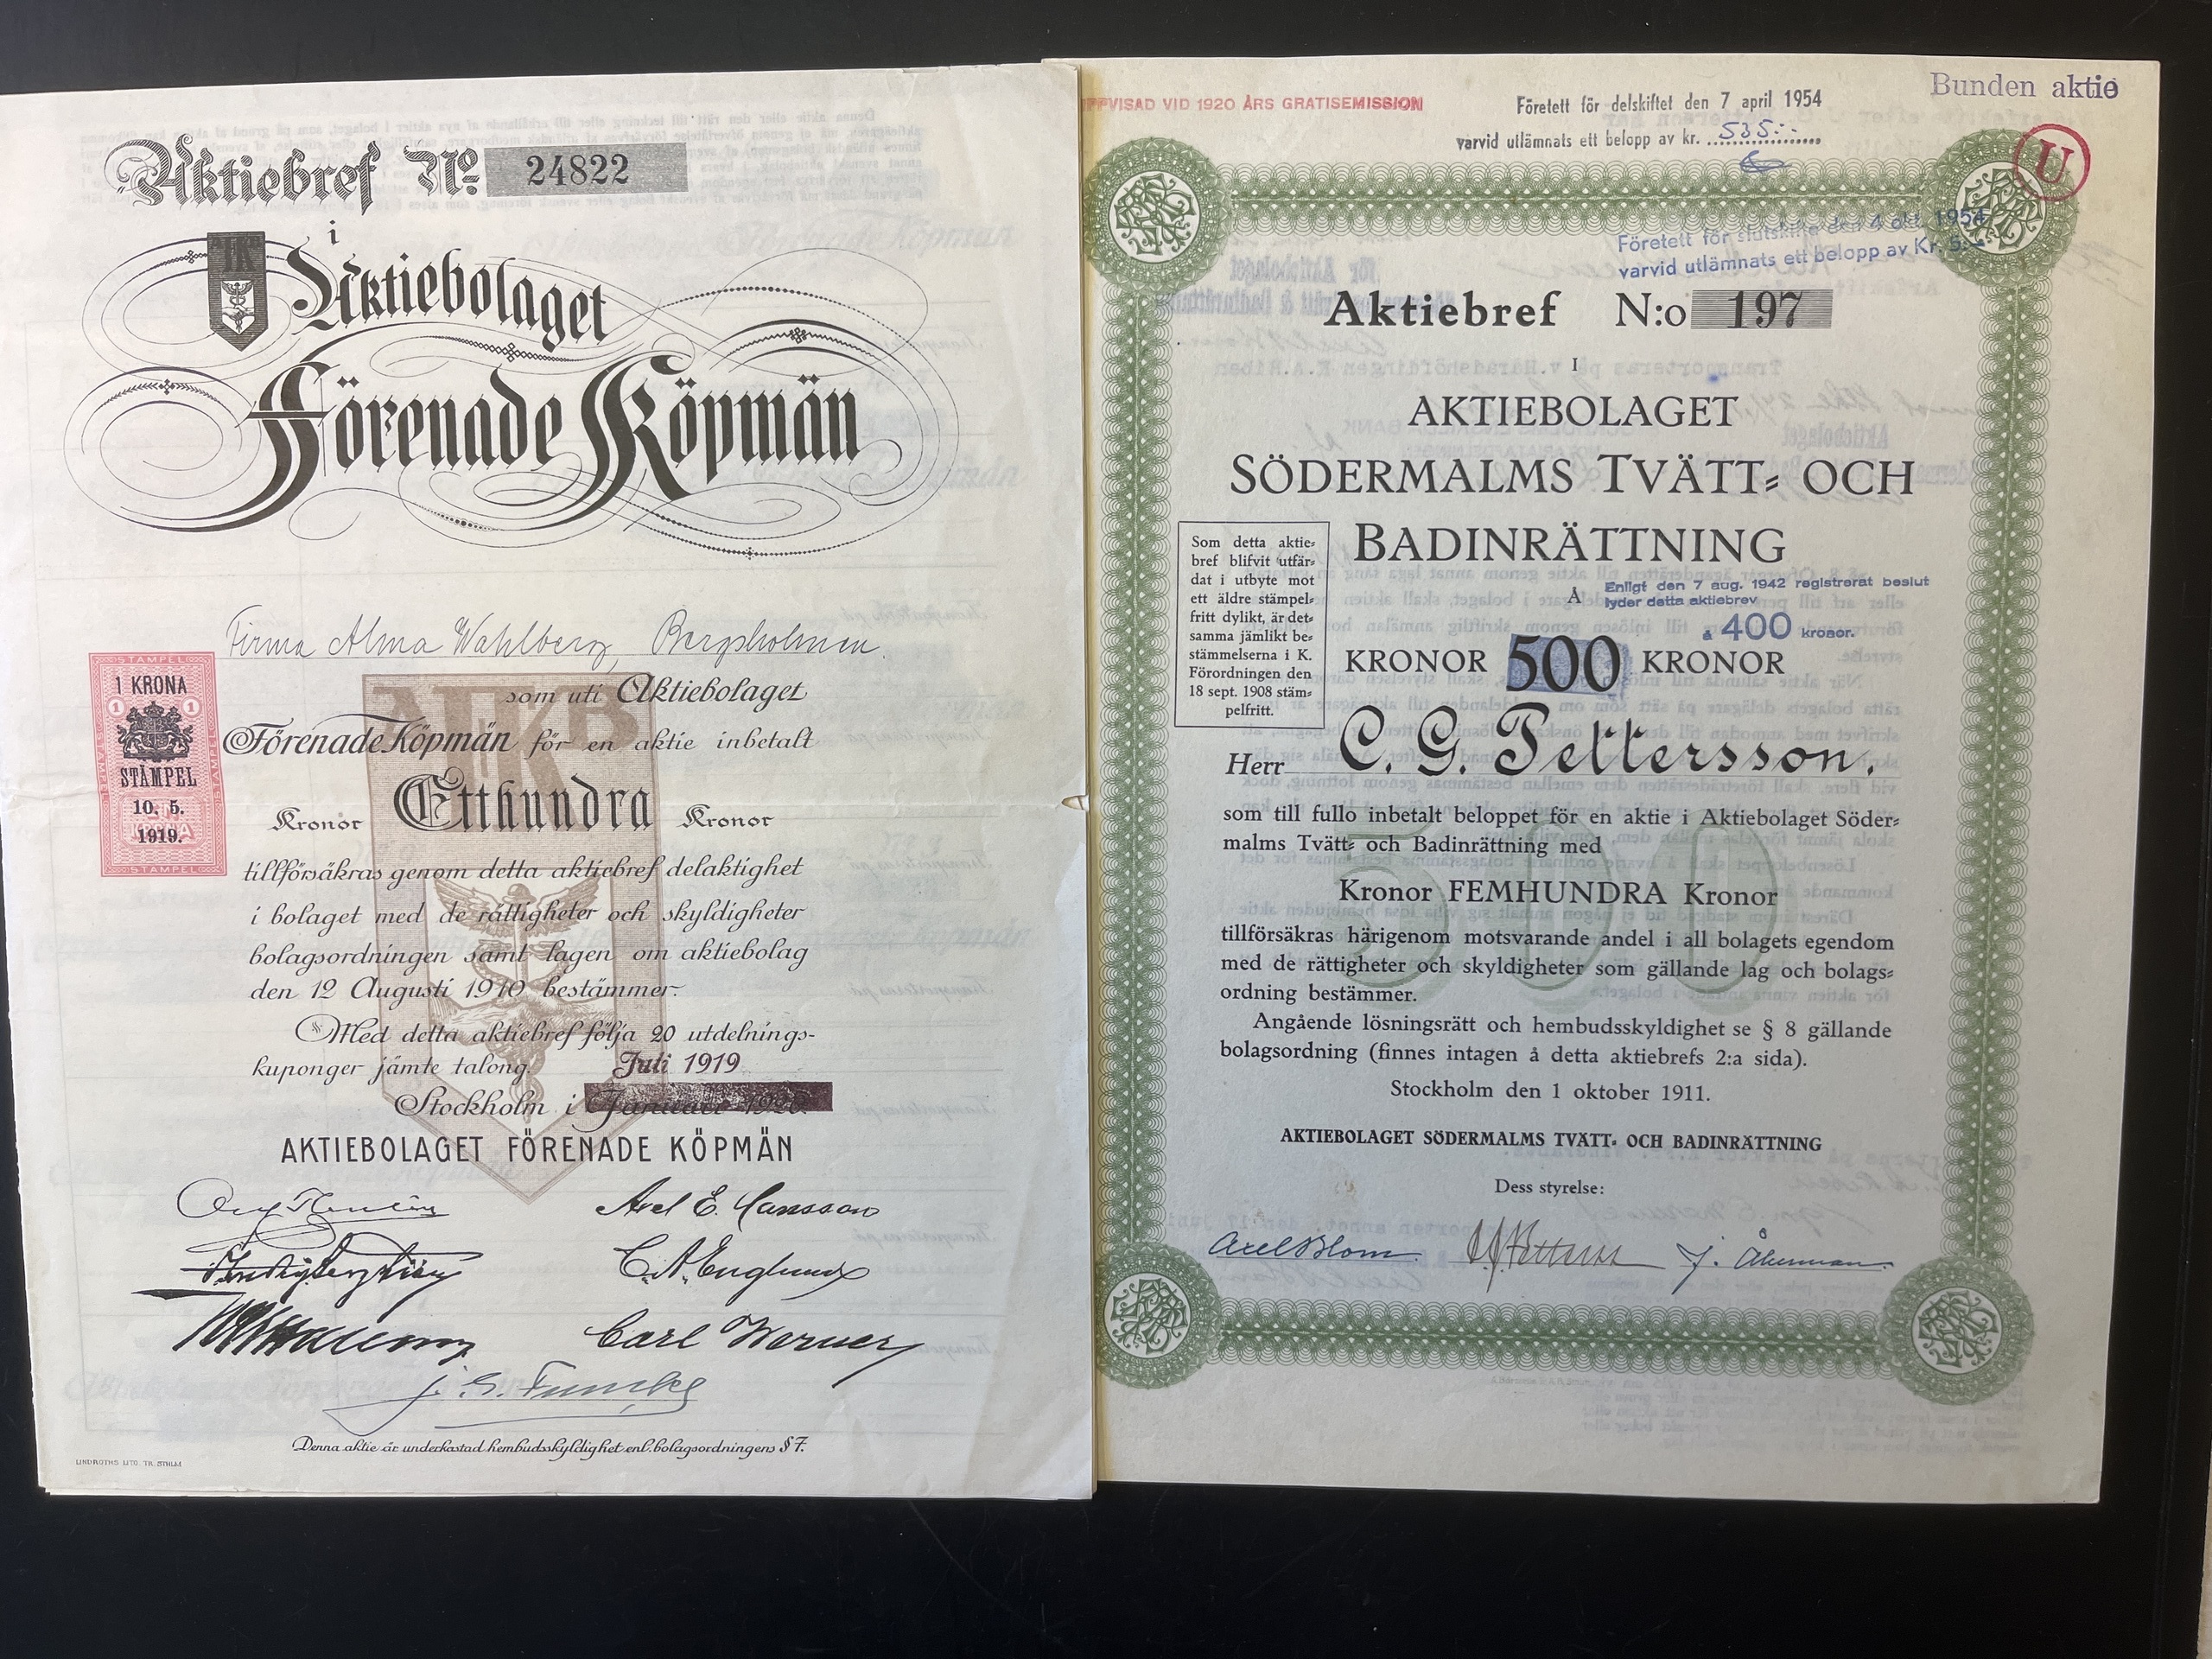 Aktiebref No 24822
i
Aktiebolaget
Förenade Köpmän
Firma Alma Wahlberg, Bergsholmen.
1 KRONA
1 1
STÄMPEL
10. 5.
1919.
som uti Aktiebolaget
Förenade Köpmän för en aktie inbetalt
Kronor Etthundra Kronor
tillförsäkras genom detta aktiebref delaktighet
i bolaget med de rättigheter och skyldigheter
bolagsordningen samt lagen om aktiebolag
den 12 Augusti 1910 bestämmer.
Med detta aktiebref följa 20 utdelnings-
kuponger jämte talong.
Juli 1919
Stockholm i Januari
AKTIEBOLAGET FÖRENADE KÖPMÄN
Axel E. Hansson
C.A. Englund
Carl Werner
Denna aktie är underkastad hembudsskyldighet enl. bolagsordningens § 7.
LINDROTHS LITO. TR. STHLM
UPPVISAD VID 1920 ÅRS GRATISEMISSION
Företett för delskiftet den 7 april 1954
varvid utlämnats ett belopp av kr. 535:-
Bunden aktie
U
Företett för slutskifte den 4 okt. 1954
varvid utlämnats ett belopp av Kr. 5:-
Aktiebref N:o 197
I
AKTIEBOLAGET
SÖDERMALMS TVÄTT- OCH
BADINRÄTTNING
Å
Enligt den 7 aug. 1942 registrerat beslut
lyder detta aktiebrev
à 400 kronor.
KRONOR 500 KRONOR
Som detta aktie-
bref blifvit utfär-
dat i utbyte mot
ett äldre stämpel-
fritt dylikt, är det-
samma jämlikt be-
stämmelserna i K.
Förordningen den
18 sept. 1908 stäm-
pelfritt.
Herr C. G. Pettersson.
som till fullo inbetalt beloppet för en aktie i Aktiebolaget Söder-
malms Tvätt- och Badinrättning med
Kronor FEMHUNDRA Kronor
tillförsäkras härigenom motsvarande andel i all bolagets egendom
med de rättigheter och skyldigheter som gällande lag och bolags-
ordning bestämmer.
Angående lösningsrätt och hembudsskyldighet se § 8 gällande
bolagsordning (finnes intagen å detta aktiebrefs 2:a sida).
Stockholm den 1 oktober 1911.
AKTIEBOLAGET SÖDERMALMS TVÄTT- OCH BADINRÄTTNING
Dess styrelse:
Axel Blom. J. Åkerman.